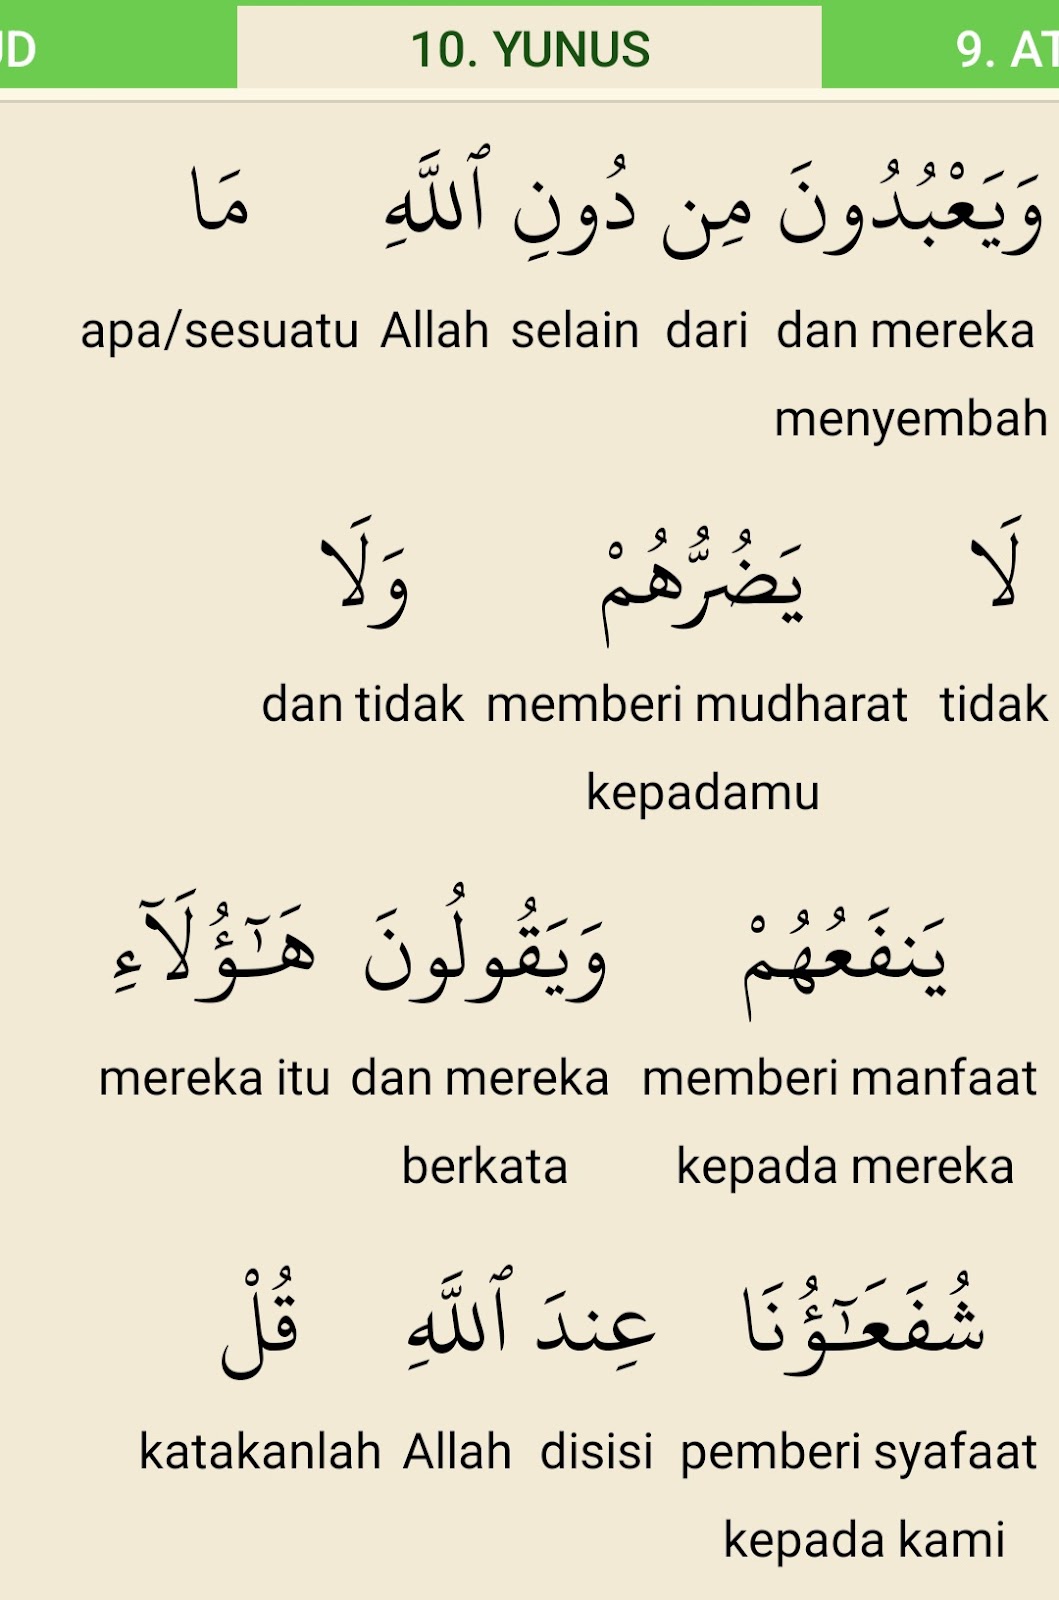 UD 10. YUNUS 9. AT
وَيَعْبُدُونَ مِن دُونِ ٱللَّهِ مَا
apa/sesuatu Allah selain dari dan mereka
menyembah
لَا يَضُرُّهُمْ وَلَا
dan tidak memberi mudharat tidak
kepadamu
يَنفَعُهُمْ وَيَقُولُونَ هَـٰٓؤُلَآءِ
mereka itu dan mereka memberi manfaat
berkata kepada mereka
شُفَعَـٰٓؤُنَا عِندَ ٱللَّهِ قُلْ
katakanlah Allah disisi pemberi syafaat
kepada kami